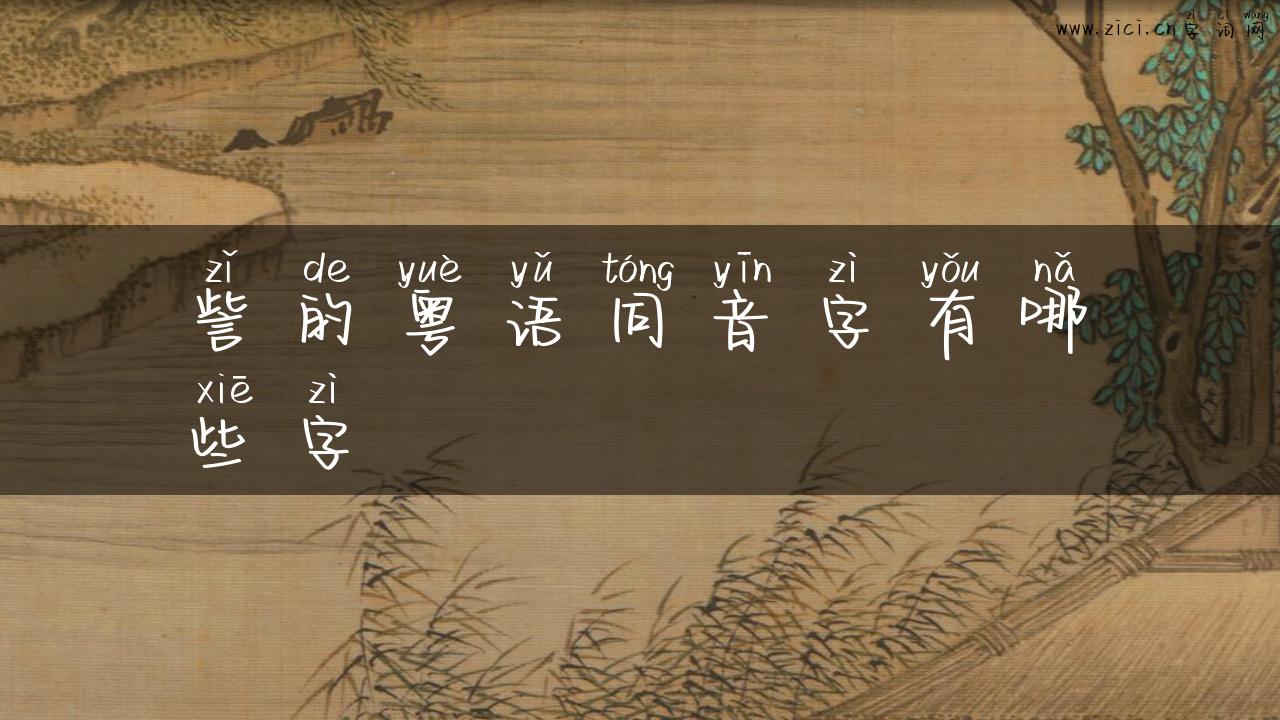 zì cí wǎng
www.zici.cn字词网
zǐ de yuè yǔ tóng yīn zì yǒu nǎ
訾的粤语同音字有哪
xiē zì
些字